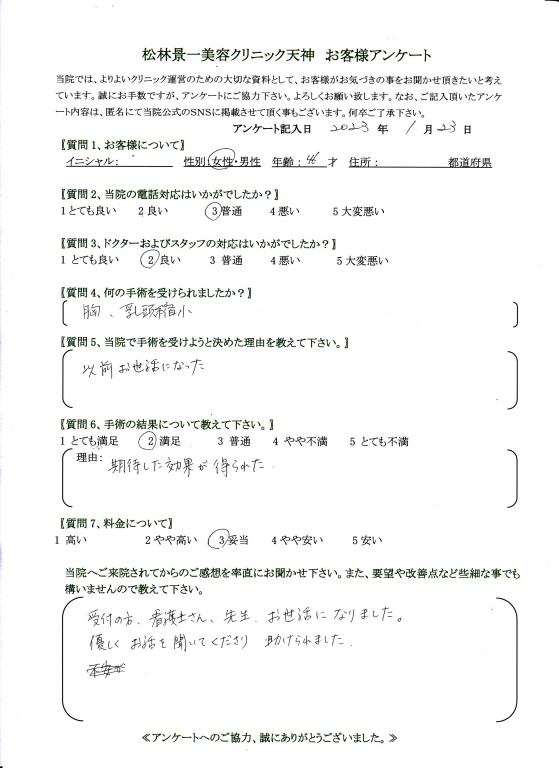 松林景一美容クリニック天神　お客様アンケート
当院では、よりよいクリニック運営のための大切な資料として、お客様がお気づきの事をお聞かせ頂きたいと考え
ています。誠にお手数ですが、アンケートにご協力下さい。よろしくお願い致します。なお、ご記入頂いたアンケ
ート内容は、匿名にて当院公式のSNSに掲載させて頂く事もございます。何卒ご了承下さい。
アンケート記入日　2023　年　1　月　23　日
〖質問1、お客様について〗
イニシャル：　　　　性別：女性・男性　年齢：46　才　住所：　　　　　都道府県
〖質問2、当院の電話対応はいかがでしたか？〗
1とても良い　2良い　3普通　4悪い　5大変悪い
〖質問3、ドクターおよびスタッフの対応はいかがでしたか？〗
1 とても良い　2 良い　3 普通　4悪い　5大変悪い
〖質問4、何の手術を受けられましたか？〗
胸、乳頭縮小
〖質問5、当院で手術を受けようと決めた理由を教えて下さい。〗
以前お世話になった
〖質問6、手術の結果について教えて下さい。〗
1 とても満足　2 満足　3 普通　4 やや不満　5 とても不満
理由：期待した効果が得られた.
〖質問7、料金について〗
1 高い　2やや高い　3妥当　4やや安い　5安い
当院へご来院されてからのご感想を率直にお聞かせ下さい。また、要望や改善点など些細な事でも
構いませんので教えて下さい。
受付の方、看護士さん、先生、お世話になりました。
優しくお話を聞いてくださり　助けられました.
≪アンケートへのご協力、誠にありがとうございました。≫